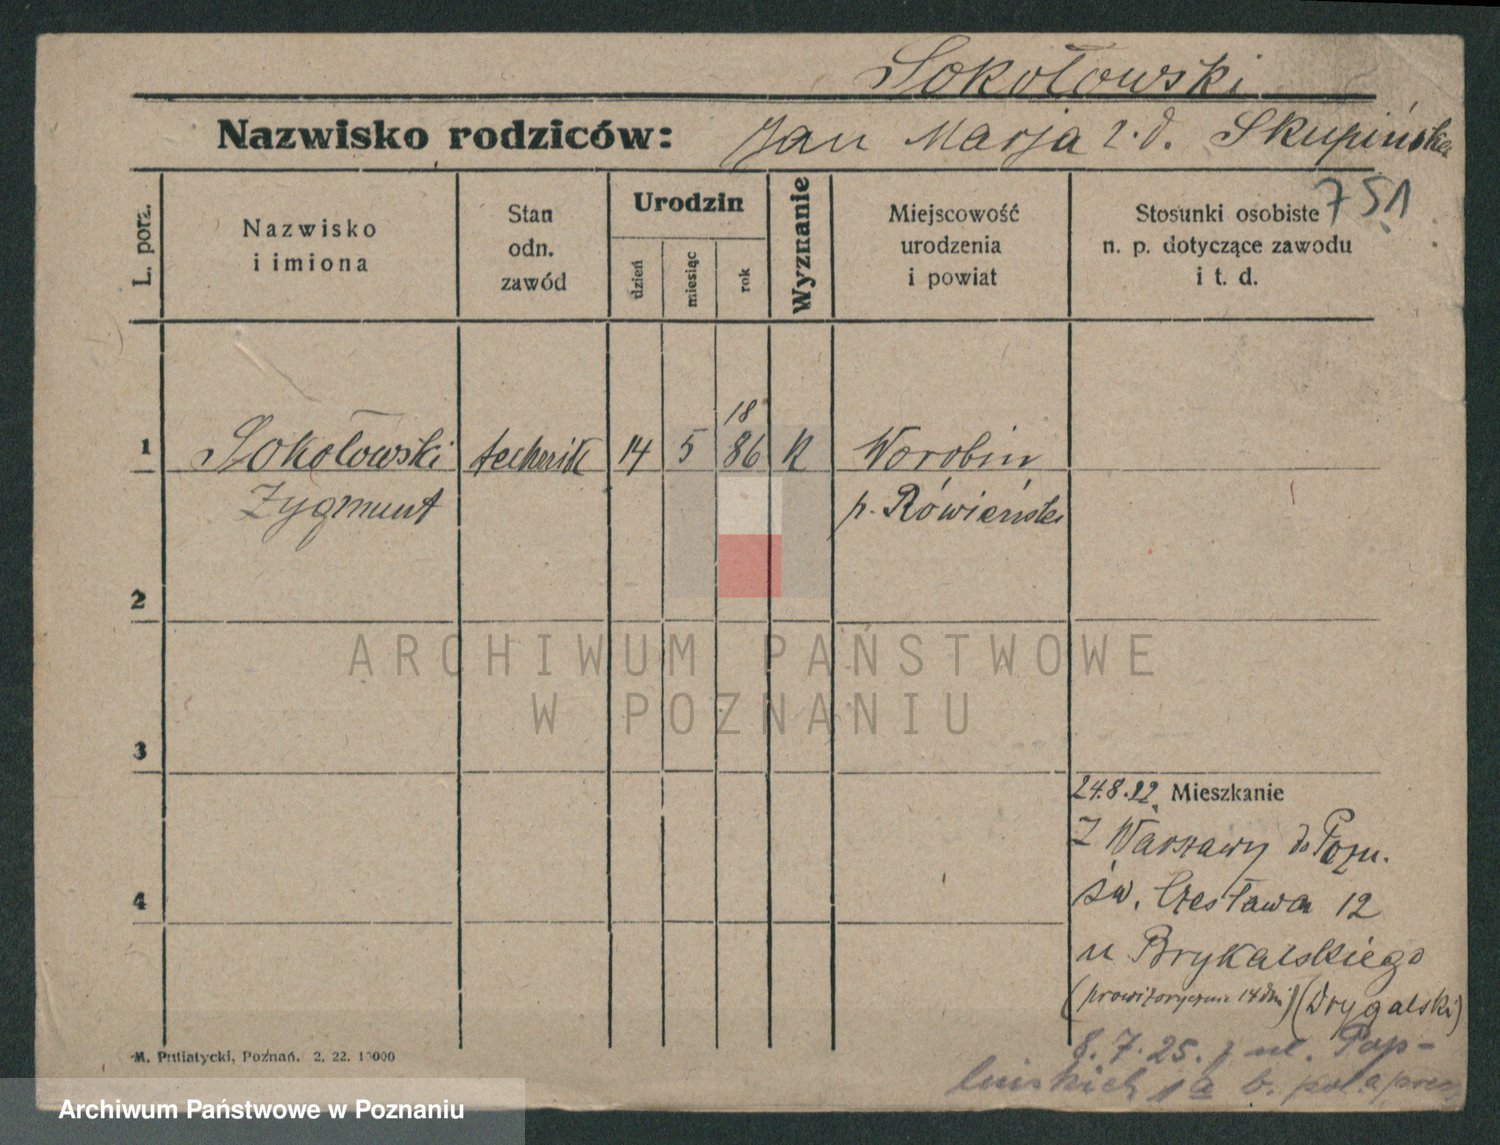 Sokołowski
Nazwisko rodziców: Jan Marja z. d. Skupińska
751
L. porz.
Nazwisko
i imiona
Stan
odn.
zawód
Urodzin
dzień
miesiąc
rok
Wyznanie
Miejscowość
urodzenia
i powiat
Stosunki osobiste
n. p. dotyczące zawodu
i t. d.
18
1 Sokołowski technik 14 5 86 K Worobin
Zygmunt p. Rówieński
2
ARCHIWUM PAŃSTWOWE
W POZNANIU
3
24.8.22. Mieszkanie
Z Warszawy do Pozn.
4 św. Czesława 12
u Brykalskiego
(prowizorycznie 14 dni) (Drygalski)
8.7.25. z ul. Pop-
lińskich 1a b.
M. Putiatycki, Poznań. 2. 22. 10000
Archiwum Państwowe w Poznaniu